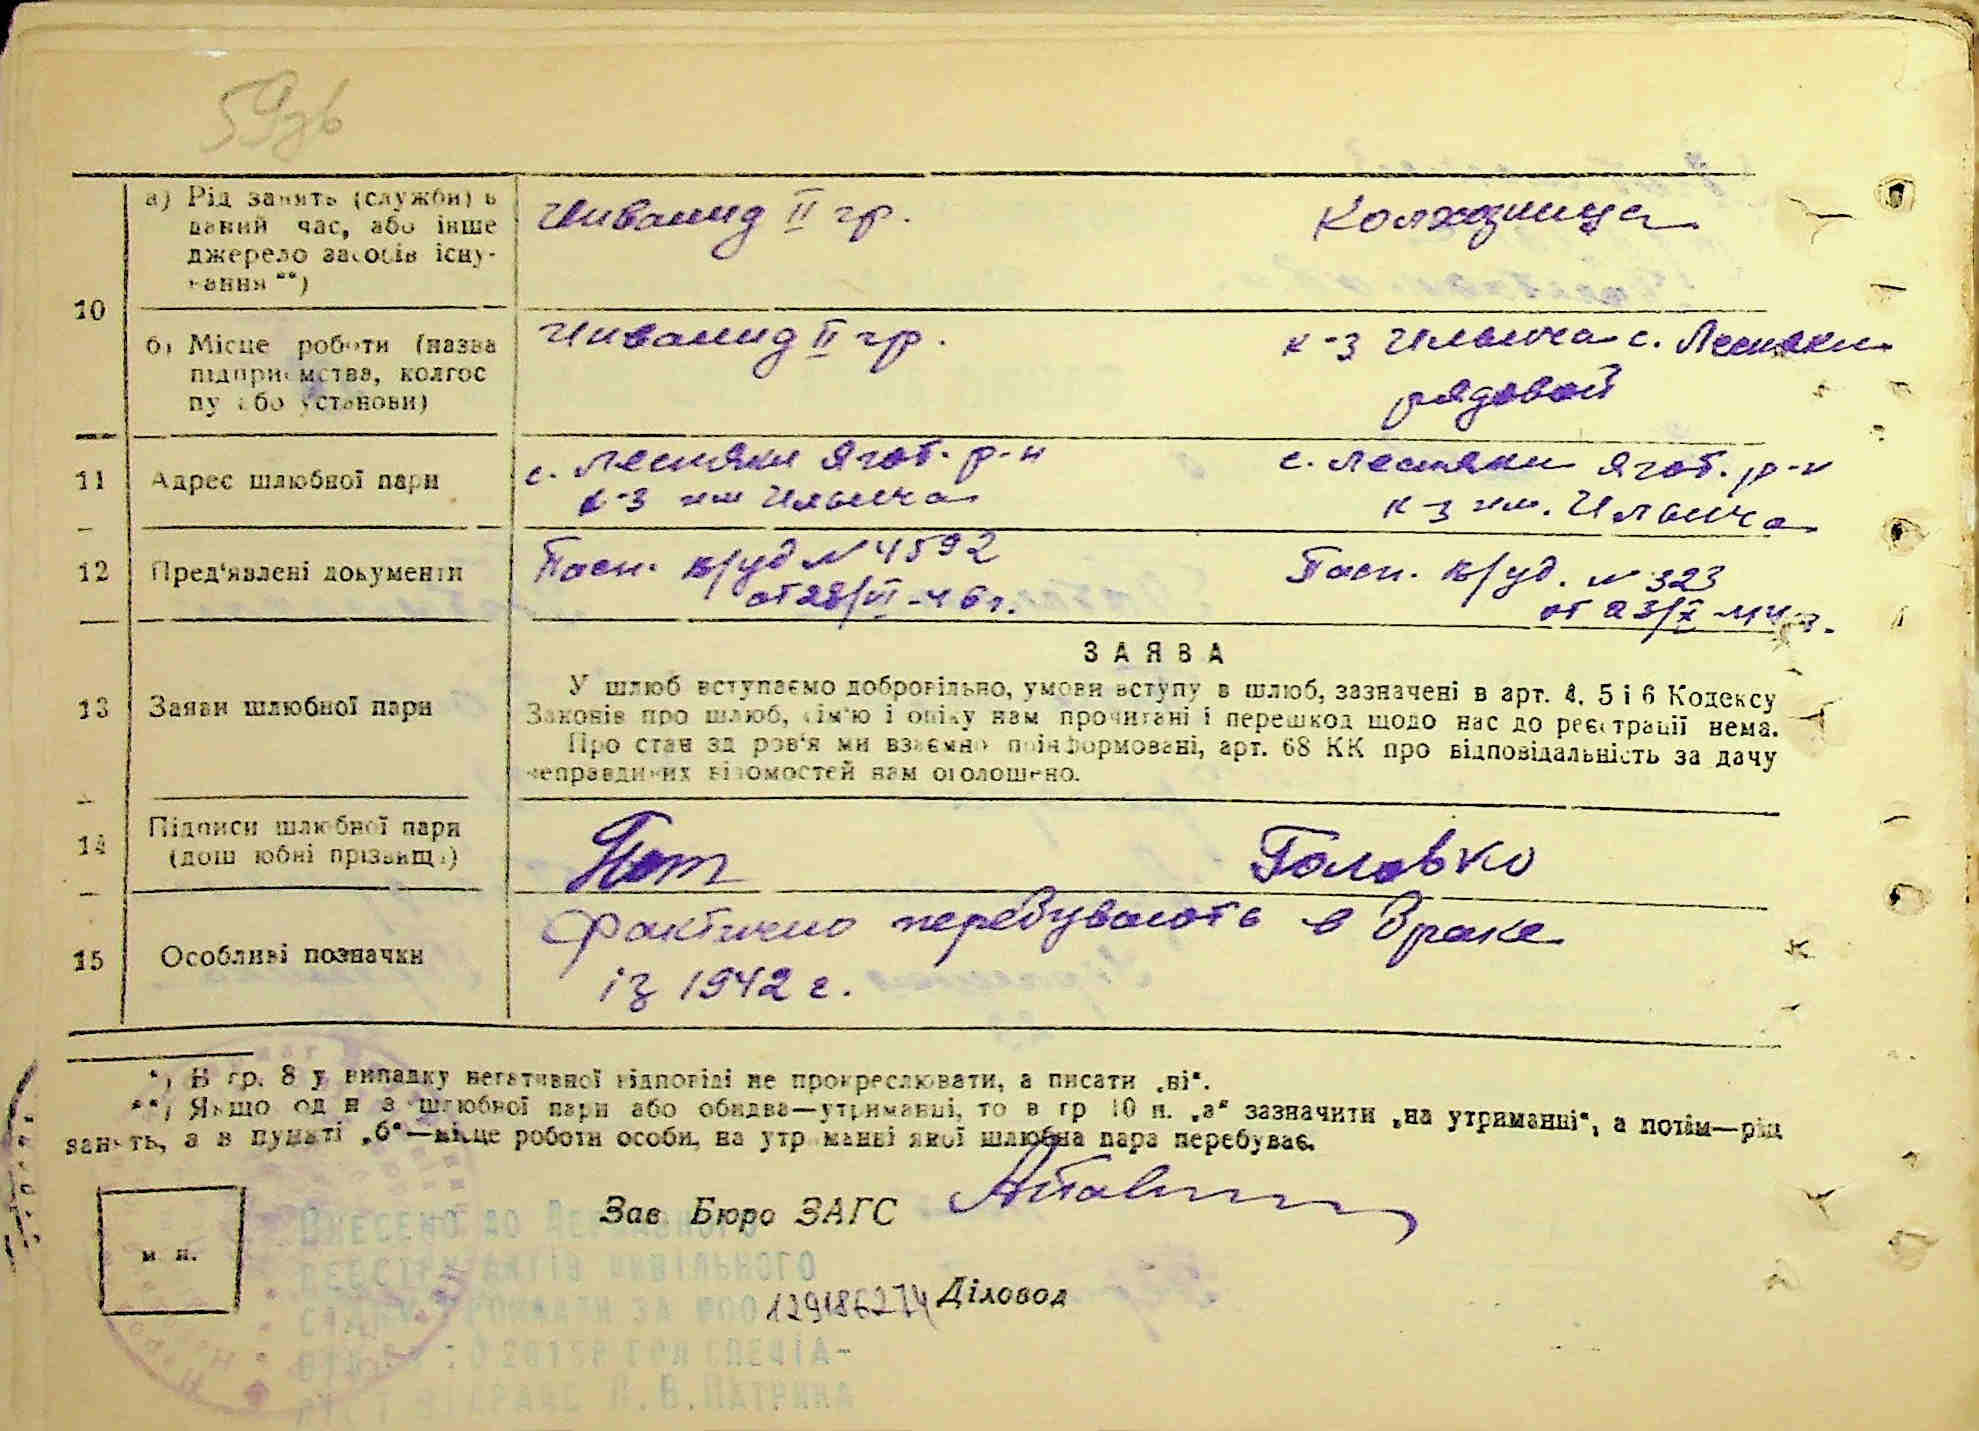 59зв
10
а) Рід занять (служби) в
даний час, або інше
джерело засобів існу-
вання **)
Инвалид II гр.
Колхозница
б) Місце роботи (назва
підприємства, колгос
пу або установи)
Инвалид II гр.
к-з Ильича с. Лесняки
рядовой
11
Адрес шлюбної пари
с. Лесняки Ягот. р-н
к-з им Ильича
с. Лесняки Ягот. р-н
к-з им. Ильича
12
Пред'явлені документи
Пасп. в/уд N 4592
от 28/VI-46г.
Пасп. в/уд. N 323
от 23/X-44г.
13
Заяви шлюбної пари
ЗАЯВА
У шлюб вступаємо добровільно, умови вступу в шлюб, зазначені в арт. 4, 5 і 6 Кодексу
Законів про шлюб, сім'ю і опіку нам прочитані і перешкод щодо нас до реєстрації нема.
Про стан здоров'я ми взаємно поінформовані, арт. 68 КК про відповідальність за дачу
неправдивих відомостей нам оголошено.
14
Підписи шлюбної пари
(дошлюбні прізвища)
Головко
15
Особливі позначки
Фактично перебувають в браке
із 1942 г.
*) В гр. 8 у випадку негативної відповіді не прокреслювати, а писати „ні“.
**) Якщо один з шлюбної пари або обидва—утриманці, то в гр 10 п. „а“ зазначити „на утриманні“, а потім—рід
занять, а в пункті „б“—місце роботи особи, на утриманні якої шлюбна пара перебуває.
Зав Бюро ЗАГС
м. п.
Внесено до Державного
реєстру актів цивільного
стану громадян за
129186274 Діловод
спеціа-
ліст відрацс Л.В.Патрина